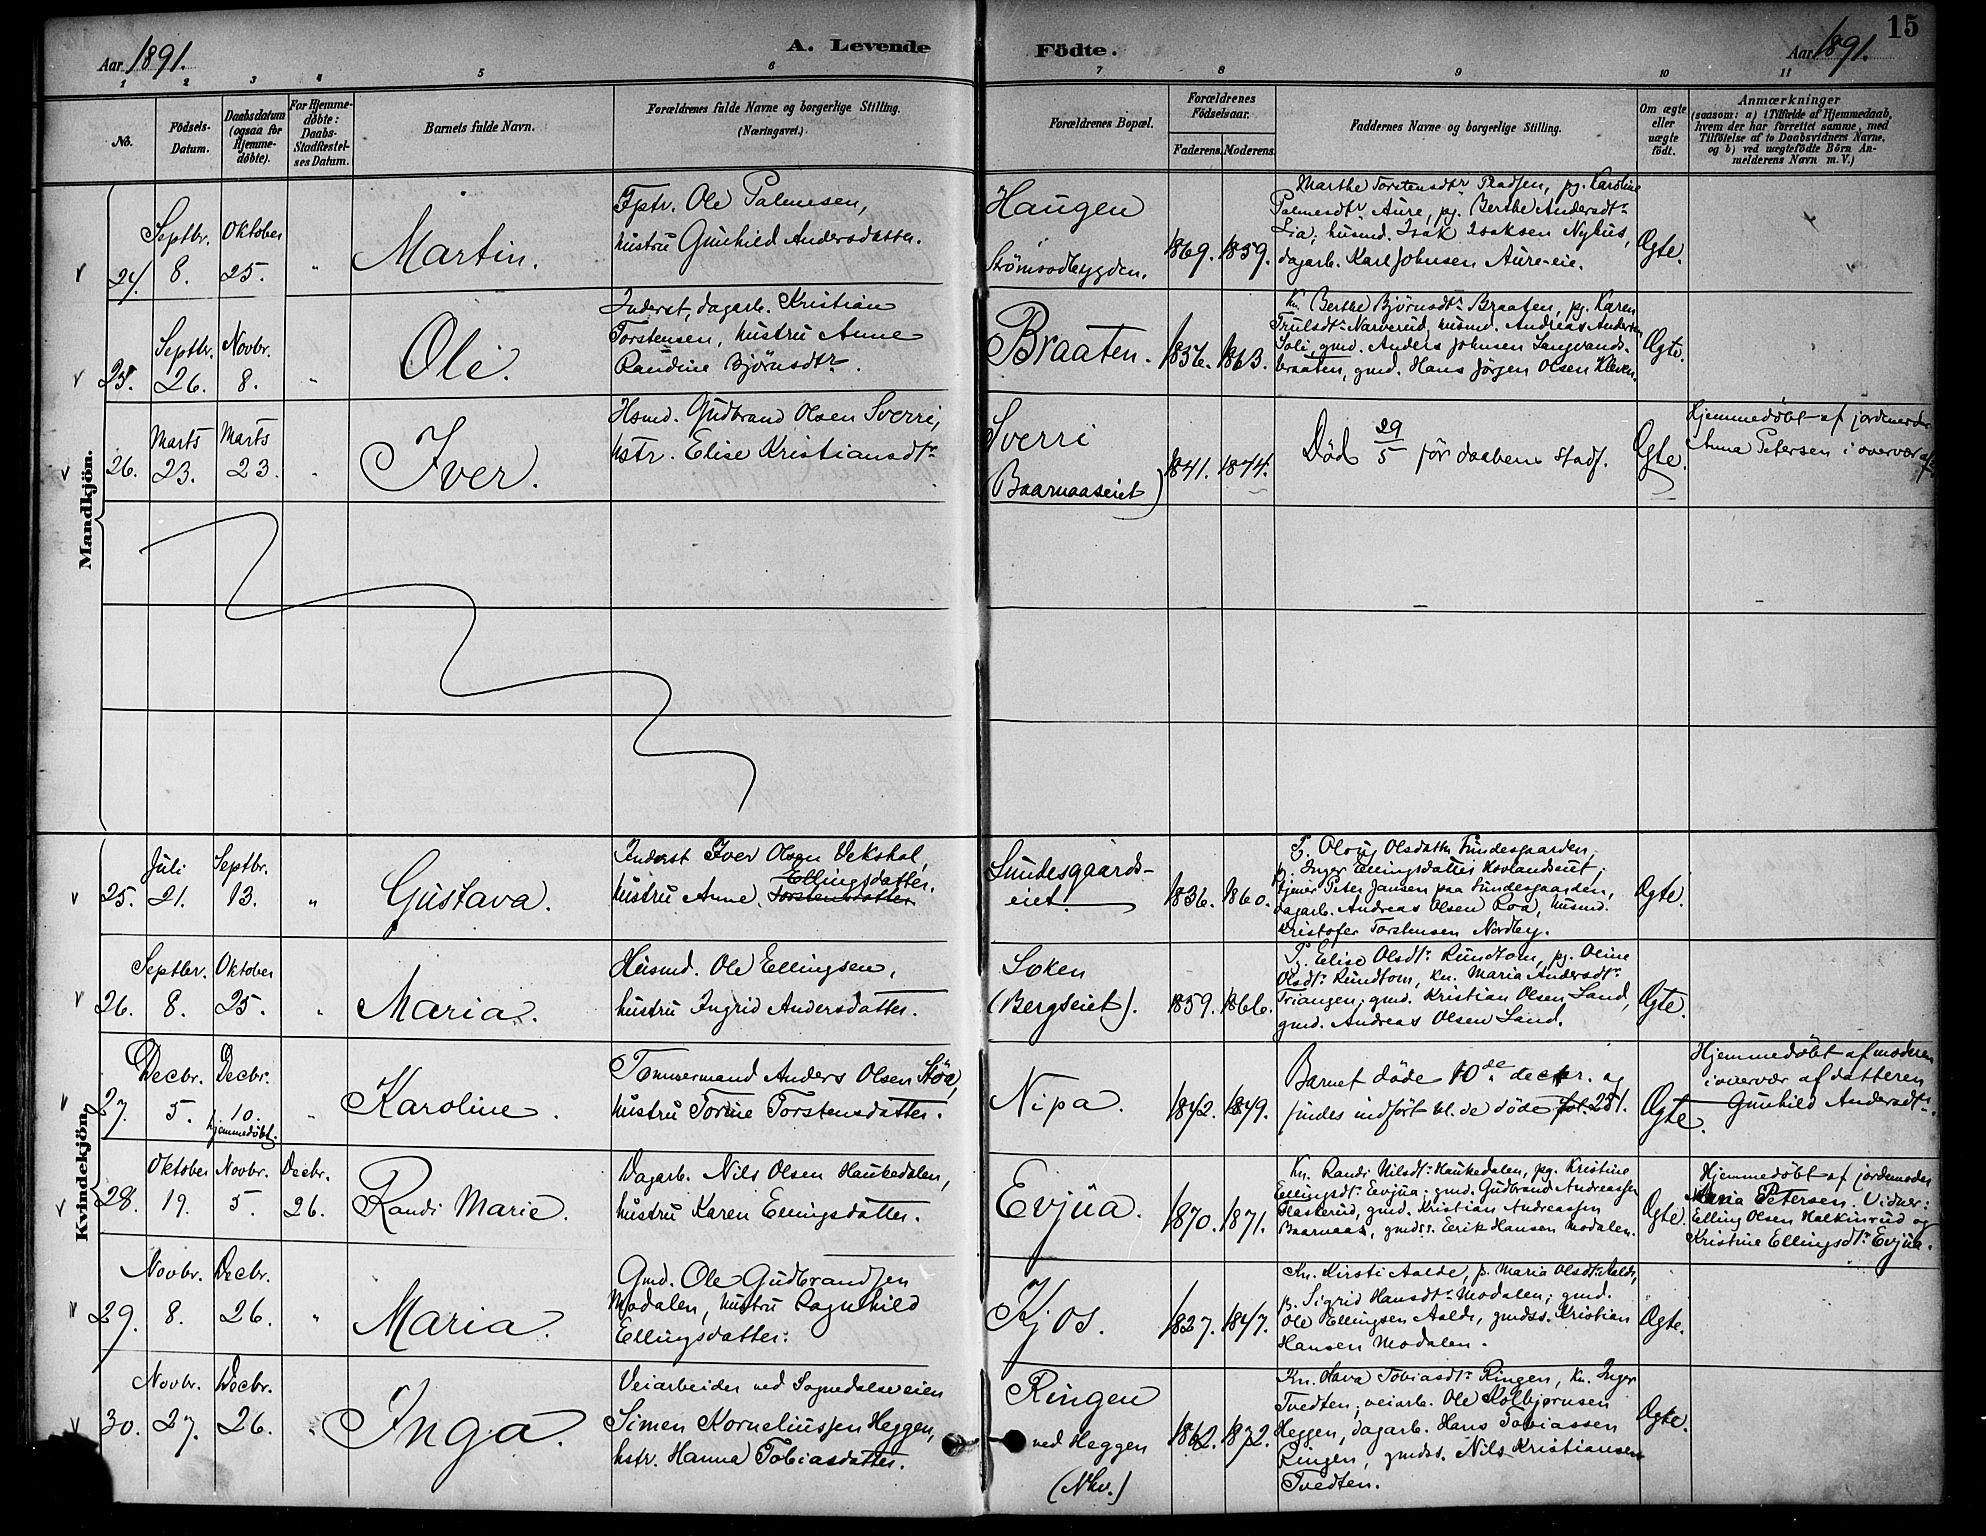 Aar 1891.
A. Levende Födte.
Aar 1891.
15
1 2 3 4 5 6 7 8 9 10 11
No.
Födsels-Datum.
Daabsdatum (ogsaa for Hjemmedöbte).
For Hjemmedöbte: Daabs-Stadfæstelses Datum.
Barnets fulde Navn.
Forældrenes fulde Navne og borgerlige Stilling. (Næringsvei.)
Forældrenes Bopæl.
Forældrenes Födselsaar.
Faderens. Moderens.
Faddernes Navne og borgerlige Stilling.
Om ægte eller uægte födt.
Anmærkninger
(saasom: a) i Tilfælde af Hjemmedaab,
hvem der har forrettet samme, med
Tilföielse af to Daabsvidners Navne,
og b) ved uægtefödte Börn An-
melderens Navn m. V.)
Mandkjön.
24. Septbr. 8. Oktober 25. "
Martin.
Fptr. Ole Palmesen,
hustru Gunhild Andersdatter.
Haugen
Strømsodbygden.
1869. 1859.
Marthe Torstensdtr Pladsen, pg. Karoline
Palmesdtr Aure, pg. Berthe Andersdtr
Lia; husmd. Isak Isaksen Nyhus,
dagarb. Karl Johnsen Aure-eie.
Ægte.
25. Septbr. 26. Novbr. 8. "
Ole.
Inderst, dagarb. Kristian
Torstensen, hustru Anne
Randine Bjørnsdtr.
Braaten.
1856. 1863.
Kn. Berthe Bjørnsdtr Braaten, pg. Karen
Trulsdtr Narverud, husmd. Andreas Andersen
Soli, gmd. Anders Johnsen Langvands-
braaten, gmd. Hans Jørgen Olsen Kleven.
Ægte.
26. Marts 23. Marts 23. "
Iver.
Hsmd. Gudbrand Olsen Sverri,
hstr. Elise Kristiansdtr
Sverri
(Baarnaaseiet)
1841. 1874.
Død 29/5 før daabens stadf.
Ægte.
Hjemmedøbt af jordemoder
Anna Petersen i overvær af
Kvindekjön.
25. Juli 21. Septbr. 13. "
Gustava.
Inderst Iver Olsen Vekshal,
Ellingsdatter.
hustru Anne Torstensdatter
Sundesgaards-
eiet.
1836. 1860.
P. Oloug Olsdatter Sundesgaarden,
pg. Inger Ellingsdatter Hovlandseiet,
tjener Peter Jansen paa Sundesgaarden,
dagarb. Andreas Olsen Roa, husmd.
Kristofer Torstensen Nordby.
Ægte.
26. Septbr. 8. Oktober 25. "
Maria.
Husmd. Ole Ellingsen,
hustru Ingrid Andersdatter.
Loken
(Bergseiet).
1859. 1866.
Pg. Elise Olsdtr Rundtom, pg. Oline
Olsdtr Rundtom, kn. Maria Andersdtr
Triangen; gmd. Kristian Olsen Sand,
gmd. Andreas Olsen Sand.
Ægte.
27. Decbr. 5. Decbr. 10. hjemmedøbt. "
Karoline.
Tømmermand Anders Olsen Støa,
hustru Torine Torstensdatter.
Nipa.
1842. 1849.
Barnet døde 10de decbr. og
findes indført bl. de døde fol. 251.
Ægte.
Hjemmedøbt af moderen
i overvær af datteren
Gunhild Andersdtr.
28. Oktober 19. Novbr. 5. Decbr. 26.
Randi Marie.
Dagarb. Nils Olsen Haukedalen,
hustru Karen Ellingsdatter.
Evjua.
1870. 1871.
Kn. Randi Nilsdtr Haukedalen, pg. Kristine
Ellingsdtr Evjua; gmd. Gudbrand Andreassen
Flaskerud, gmd. Kristian Andreassen
Baarnaas, gmdss. Eerik Hansen Modalen.
Ægte.
Hjemmedøbt af jordemoder
Petersen. Vidner:
Elling Olsen Halkinrud og
Kristine Ellingsdtr Evjua.
29. Novbr. 8. Decbr. 26. "
Maria.
Gmd. Ole Gudbrandsen
Modalen, hustru Ragnhild
Ellingsdatter.
Kjos.
1827. 1847.
Kn. Kirsti Aalde, p. Maria Olsdtr Aalde,
p. Sigrid Hansdtr Modalen; gmd.
Ole Ellingsen Aalde, gmdss. Kristian
Hansen Modalen.
Ægte.
30. Novbr. 27. Decbr. 26. "
Inga.
Veiarbeider ved Sognedalsveien
Simen Korneliussen Heggen,
hstr. Hanna Tobiasdatter.
Ringen
ved Heggen
(Nkv.)
1862. 1872.
Kn. Hava Tobiasdtr Ringen, kn. Inger
Tvedten; veiarb. Ole Kolbjørnsen
Heggen, dagarb. Hans Tobiassen
Ringen, gmdss. Nils Kristiansen
Tvedten.
Ægte.